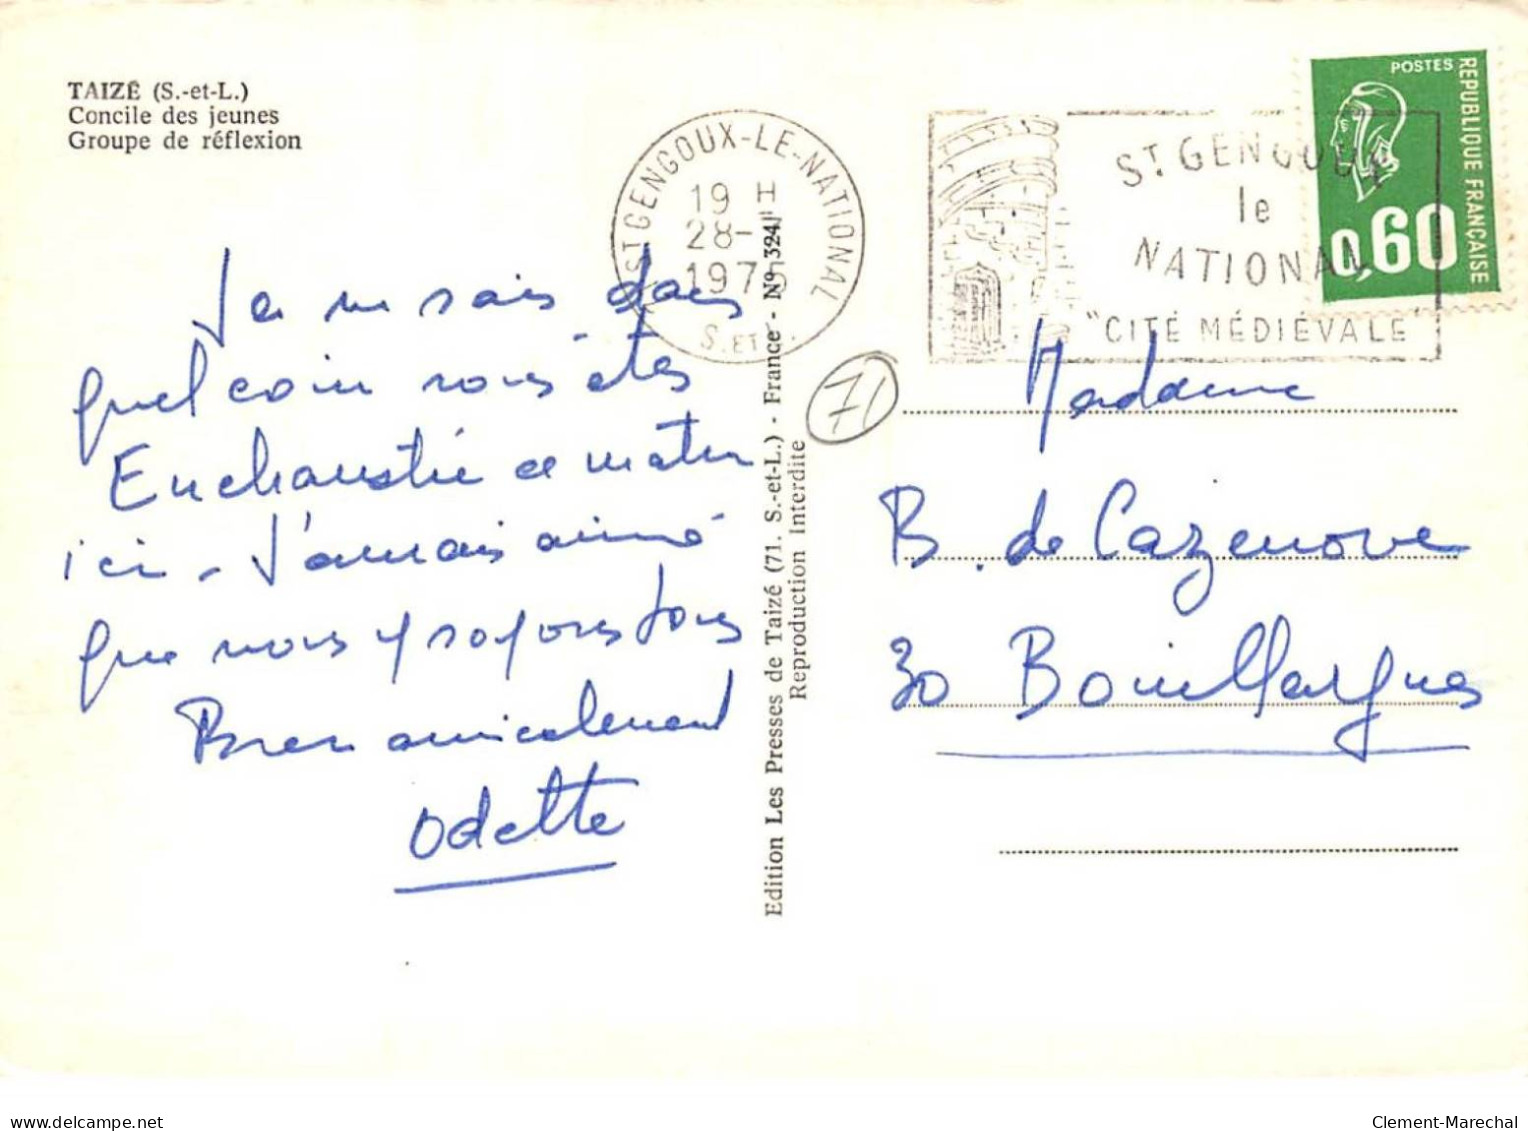 TAIZÉ (S.-et-L.)
Concile des jeunes
Groupe de réflexion
Je ne sais dans
quel coin vous êtes
Eucharistie ce matin
ici - J'aurais aimé
que nous y soyons tous
Bien amicalement
Odette
Edition Les Presses de Taizé (71. S.-et-L.) - France - Nº 324
Reproduction Interdite
ST GENGOUX-LE-NATIONAL
19 H
28-
197
S. ET
ST. GENGOUX
le
NATIONAL
"CITÉ MÉDIÉVALE"
POSTES
REPUBLIQUE FRANÇAISE
0,60
71
Madame
B. de Cazenove
30 Bouillargues
delcampe.net
Clement-Marechal